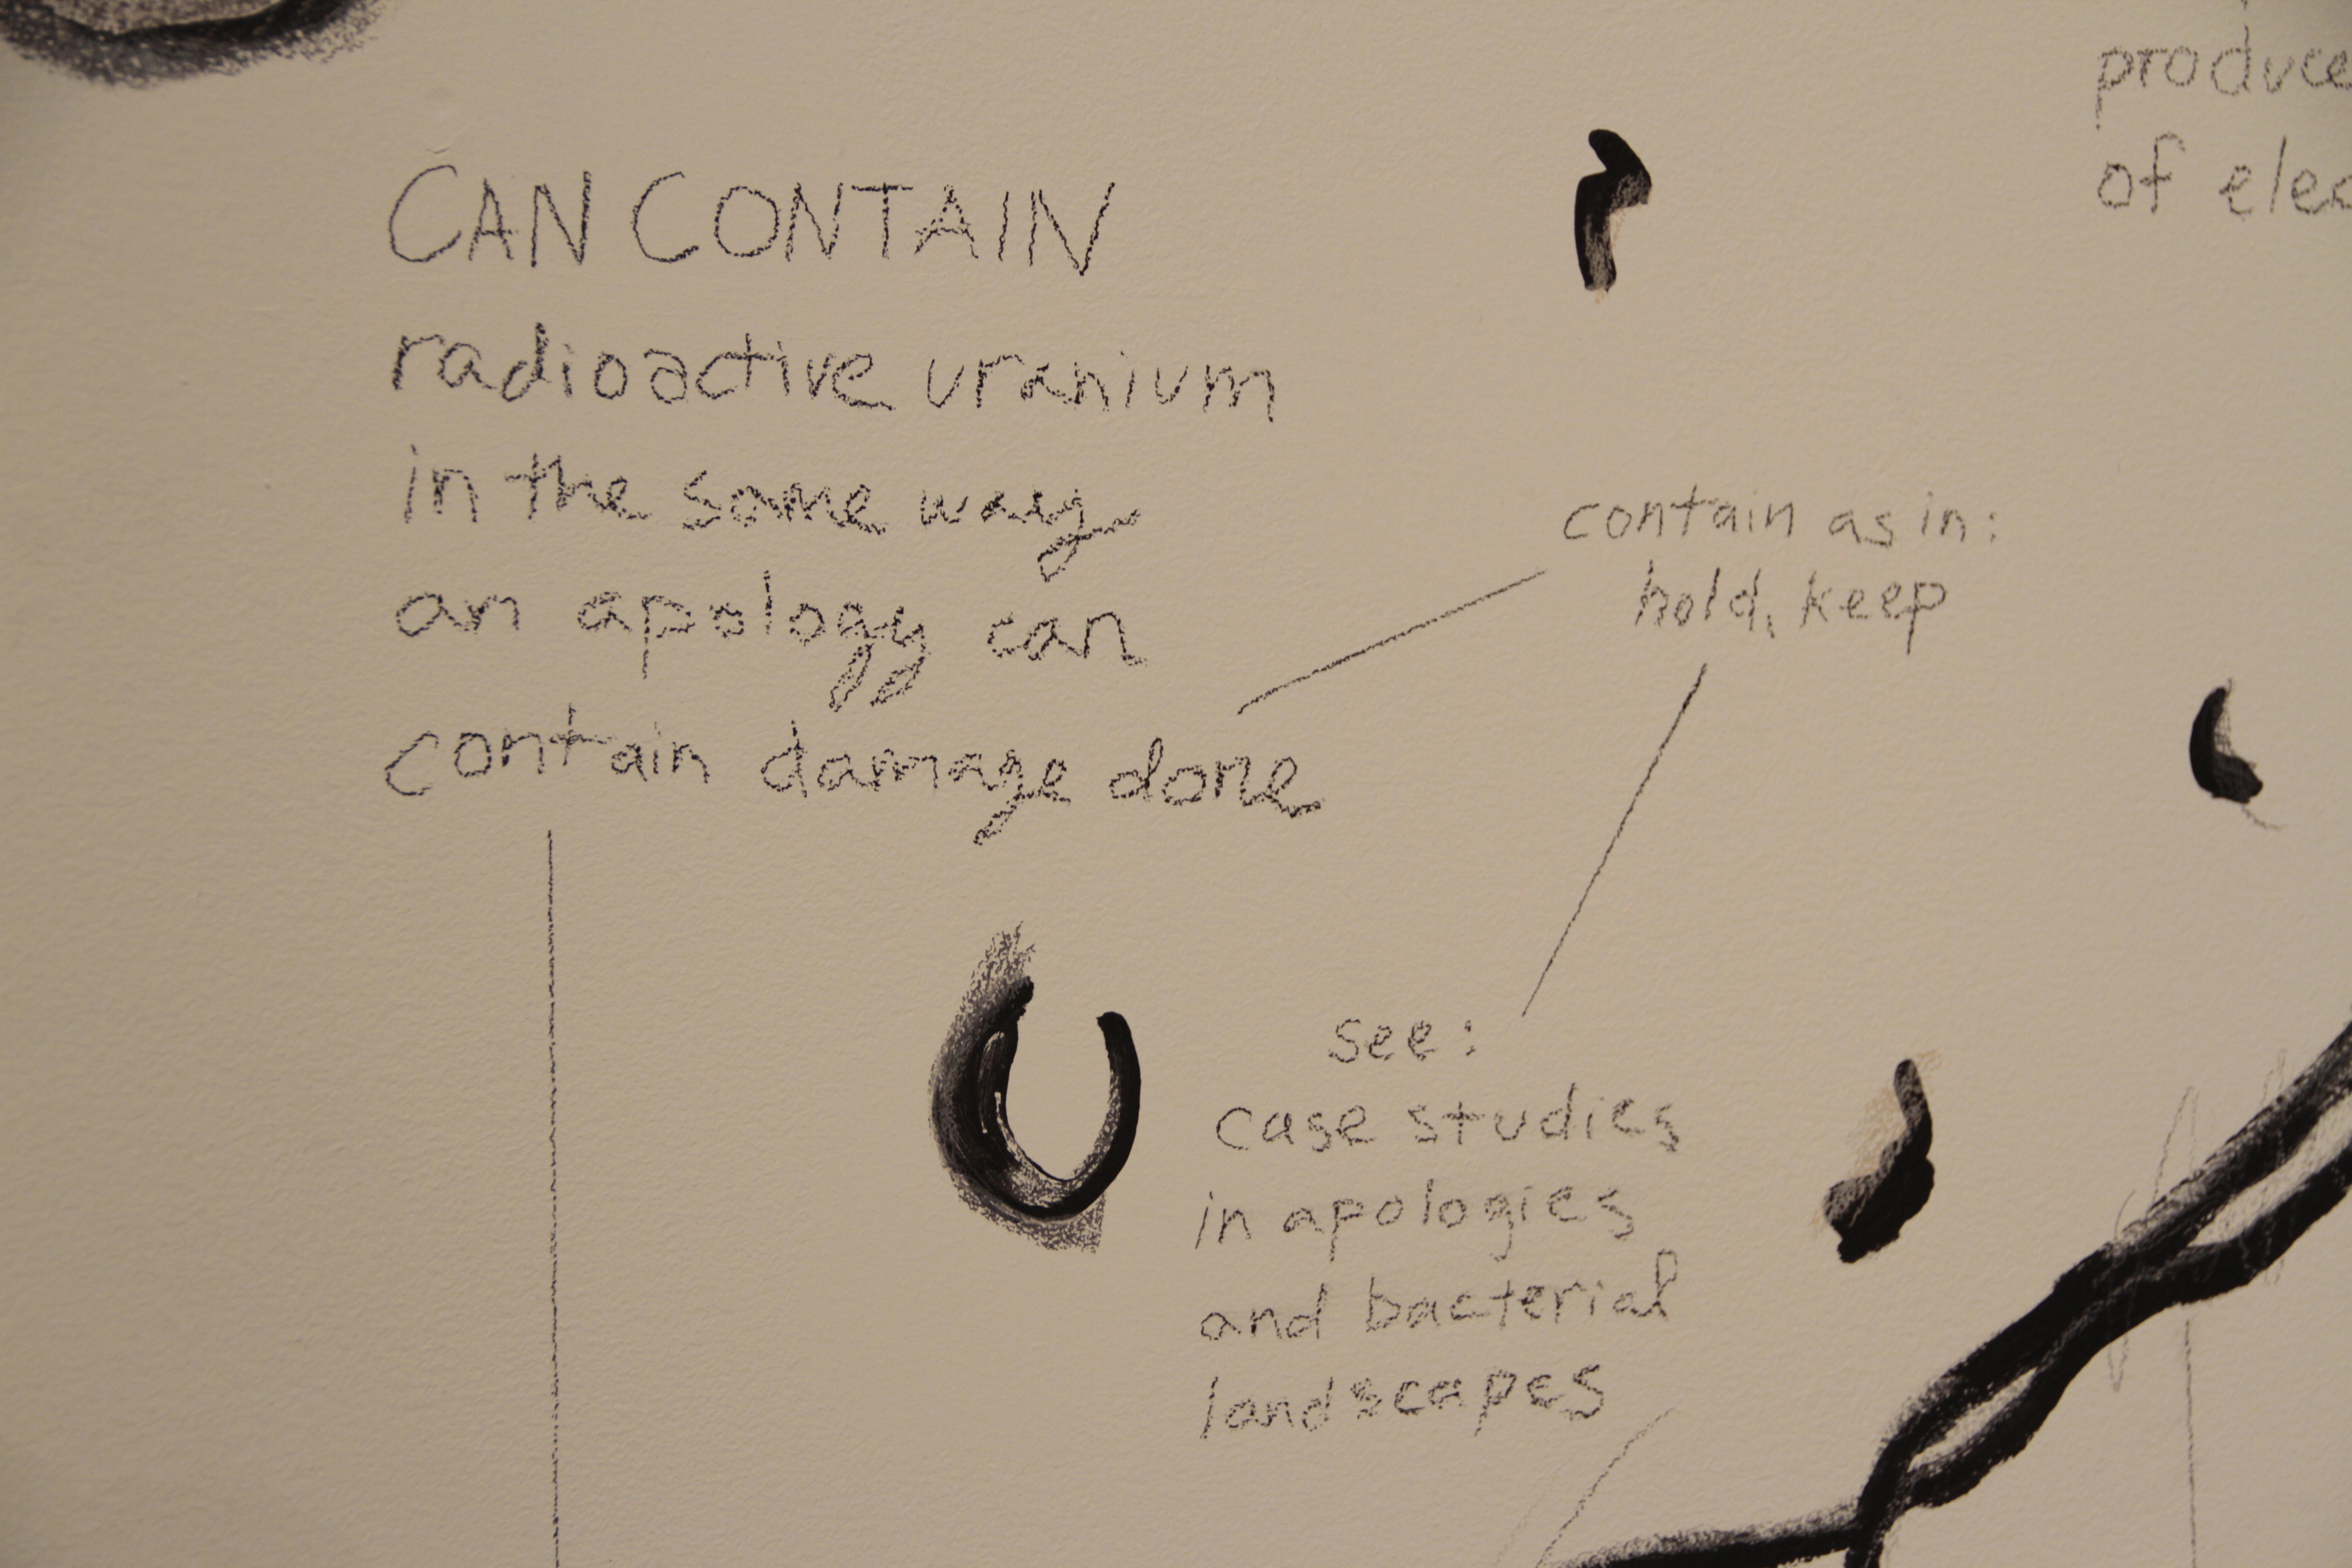 CAN CONTAIN
radioactive uranium
in the same way
an apology can
contain damage done
contain as in:
hold, keep
see:
case studies
in apologies
and bacterial
landscapes
produce
of elec